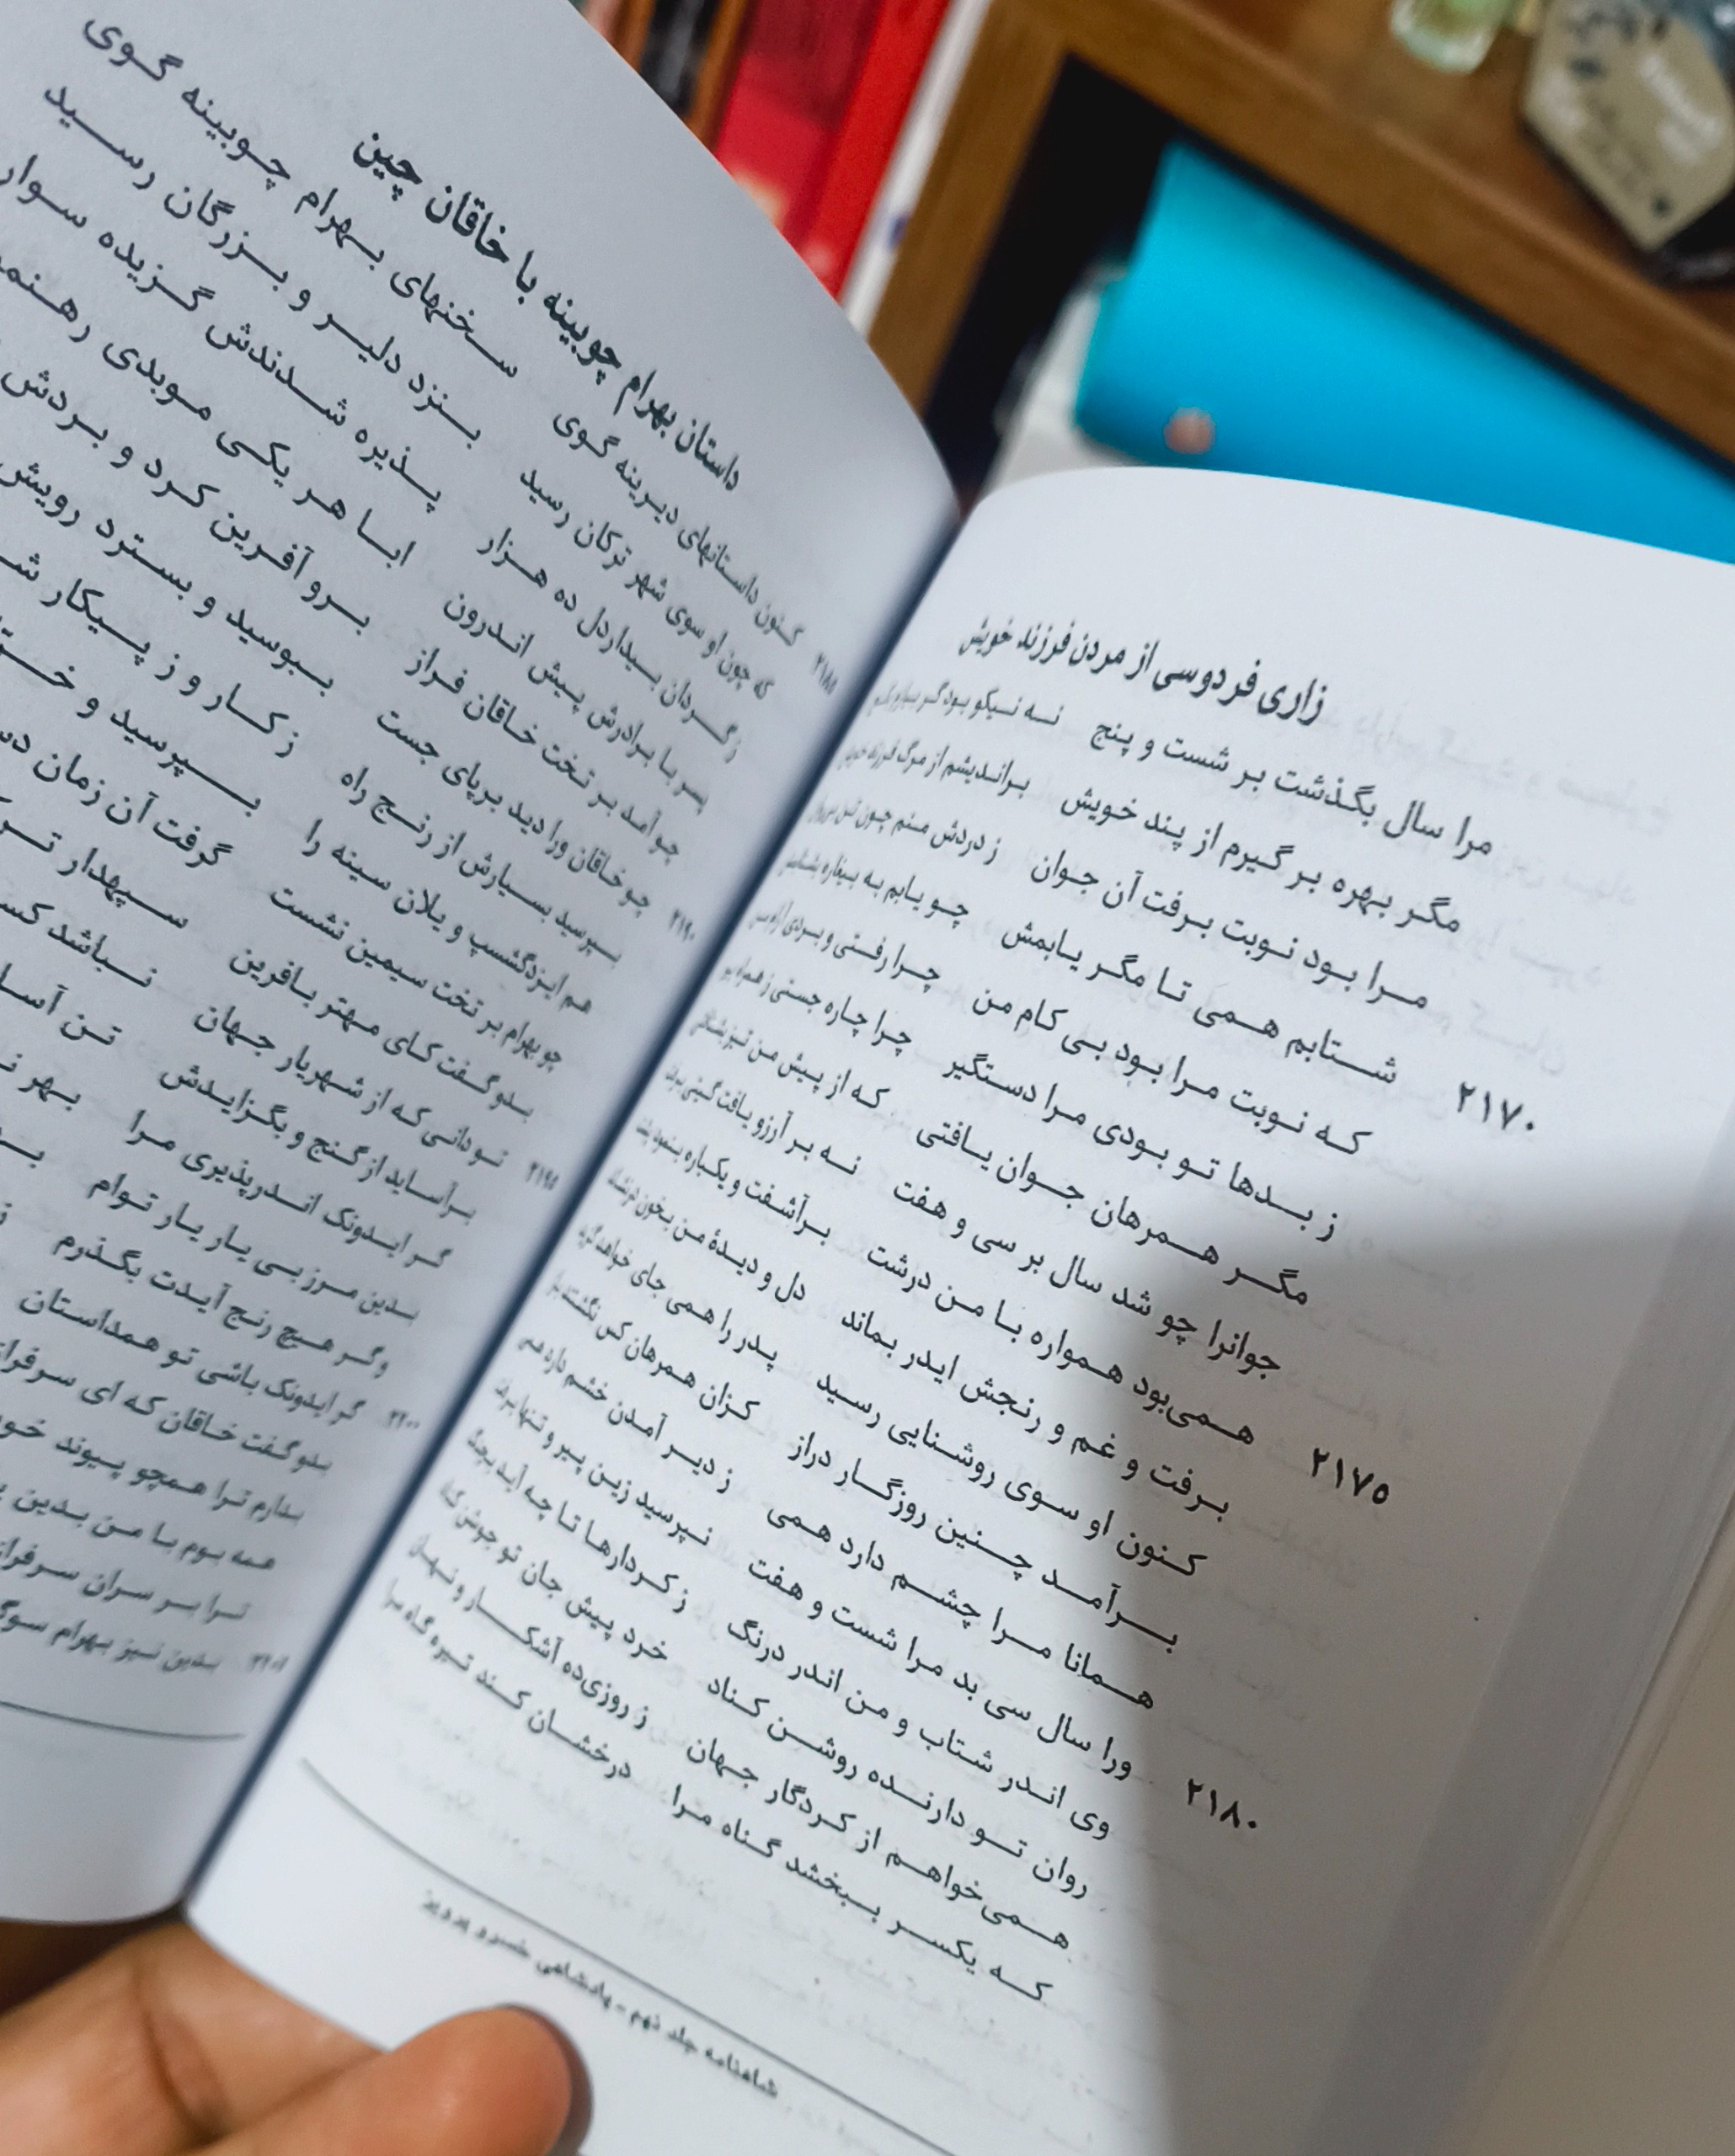 زاری فردوسی از مردن فرزند خویش
مرا سال بگذشت بر شست و پنج نه نیکو بود گر بیازم بگنج
مگر بهره بر گیرم از پند خویش براندیشم از مرگ فرزند خویش
مرا بود نوبت برفت آن جوان ز دردش منم چون تن بی‌روان
شتابم همی تا مگر یابمش چو یابم به بیغاره بشتابمش
۲۱۷۰ که نوبت مرا بود بی کام من چرا رفتی و بردی آرام من
ز بدها تو بودی مرا دستگیر چرا چاره جستی ز همراه پیر
مگر همرهان جوان یافتی که از پیش من تیز بشتافتی
جوانرا چو شد سال بر سی و هفت نه بر آرزو یافت گیتی برفت
همی‌بود همواره با من درشت برآشفت و یکباره بنمود پشت
۲۱۷۵ برفت و غم و رنجش ایدر بماند دل و دیدهٔ من بخون درنشاند
کنون او سوی روشنایی رسید پدر را همی جای خواهد گزید
برآمد چنین روزگار دراز کزان همرهان کس نگشتند باز
همانا مرا چشم دارد همی ز دیر آمدن خشم دارد همی
ورا سال سی بد مرا شست و هفت نپرسید زین پیر و تنها برفت
۲۱۸۰ وی اندر شتاب و من اندر درنگ ز کردارها تا چه آید بچنگ
روان تو دارنده روشن کناد خرد پیش جان تو جوشن کناد
همی‌خواهم از کردگار جهان ز روزی‌ده آشکار و نهان
که یکسر ببخشد گناه مرا درخشان کند تیره گاه مرا
شاهنامه جلد نهم - پادشاهی خسرو پرویز
داستان بهرام چوبینه با خاقان چین
کنون داستانهای دیرینه گوی سخنهای بهرام چوبینه گوی
۲۱۸۵ که چون او سوی شهر ترکان رسید بنزد دلیر و بزرگان رسید
ز گردان بیداردل ده هزار پذیره شدندش گزیده سوار
پسر با برادرش پیش اندرون ابا هر یکی موبدی
چو آمد بر تخت خاقان فراز برو آفرین کرد و بردش
چو خاقان ورا دید برپای جست ببوسید و بسترد رویش
۲۱۹۰ بپرسید بسیارش از رنج راه ز کار و ز پیکار
هم ایزدگشسپ و یلان سینه را بپرسید و
چو بهرام بر تخت سیمین نشست گرفت آن زمان
بدو گفت کای مهتر بافرین سپهدار
تو دانی که از شهریار جهان نباشد
۲۱۹۵ برآساید از گنج و بگزایدش تن
گر ایدونک اندرپذیری مرا بهر
بدین مرز بی یار یار توام
وگر هیچ رنج آیدت بگذرم
گر ایدونک باشی تو همداستان
۲۲۰۰ بدو گفت خاقان که ای سرفراز
بدارم ترا همچو پیوند
همه بوم با من بدین
ترا بر سران سرفرازی
بدین نیز بهرام